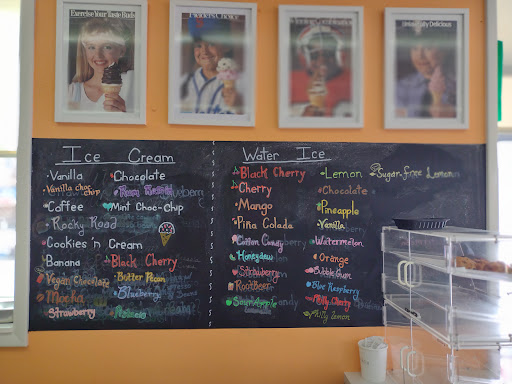 Exercise Your Taste Buds
Fielder's Choice
Winning Combination
Ice Cream
Vanilla
Vanilla choc chip
Coffee
Rocky Road
Cookies 'n Cream
Banana
Vegan Chocolate
Mocha
Strawberry
Chocolate
Mint Choc-Chip
Black Cherry
Butter Pecan
Blueberry
Water Ice
Black Cherry
Cherry
Mango
Piña Colada
Cotton Candy
Honeydew
Strawberry
RootBeer
Sour Apple
Lemon
Chocolate
Pineapple
Vanilla
Watermelon
Orange
Bubble Gum
Blue Raspberry
Lemon
Sugar Free Lemon